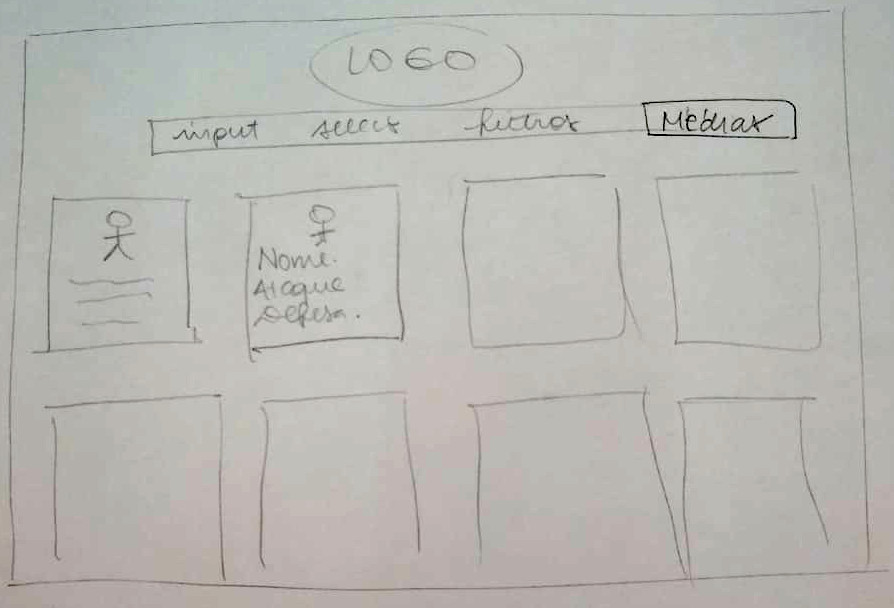 LOGO
input select filtros Médias
Nome.
Ataque
Defesa.